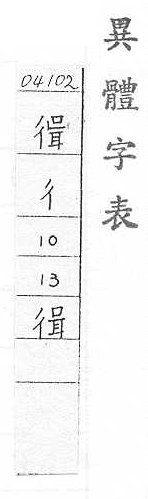 異體字表
04102
彳
10
13